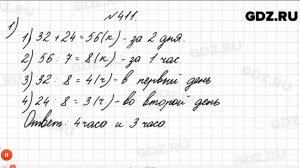 GDZ.RU
№ 411.
1) 1) 32 + 24 = 56 (к) - за 2 дня.
2) 56 : 7 = 8 (к) - за 1 час
3) 32 : 8 = 4 (ч) - в первый день
4) 24 : 8 = 3 (ч) - во второй день
Ответ: 4 часа и 3 часа.
GDZ.RU